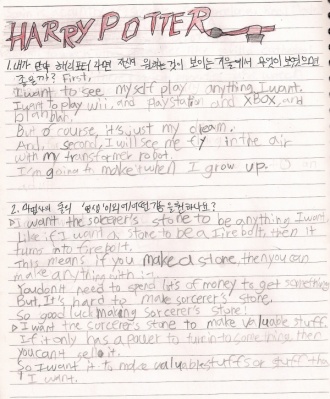 HARRY POTTER
1. 내가 만약 해리포터 라면 전재 원하는것이 보이는 거울에서 무엇이 보였으면
좋을까? First,
I want to see myself play anything I want.
I want to play wii, and playstation and XBOX, and
blah blah.
But of course, it's just my dream.
And second, I will see me fly in the air
with my transformer robot.
I'm going to make it when I grow up.
2. 마법사의 돌의
▷ I want the sorcerer's stone to be anything I want.
Like if I want a stone to be a firebolt, then it
turns into firebolt.
This means if you make a stone, then you can
make anything with it.
You don't need to spend lots of money to get something
But, It's hard to make sorcerer's stone.
So good luck making sorcerer's stone!
▷ I want the sorcerer's stone to make valuable stuff.
If it only has a power to turn into something, then
you can't sell it.
So I want it to make valuable stuffs or stuff tha
I want.